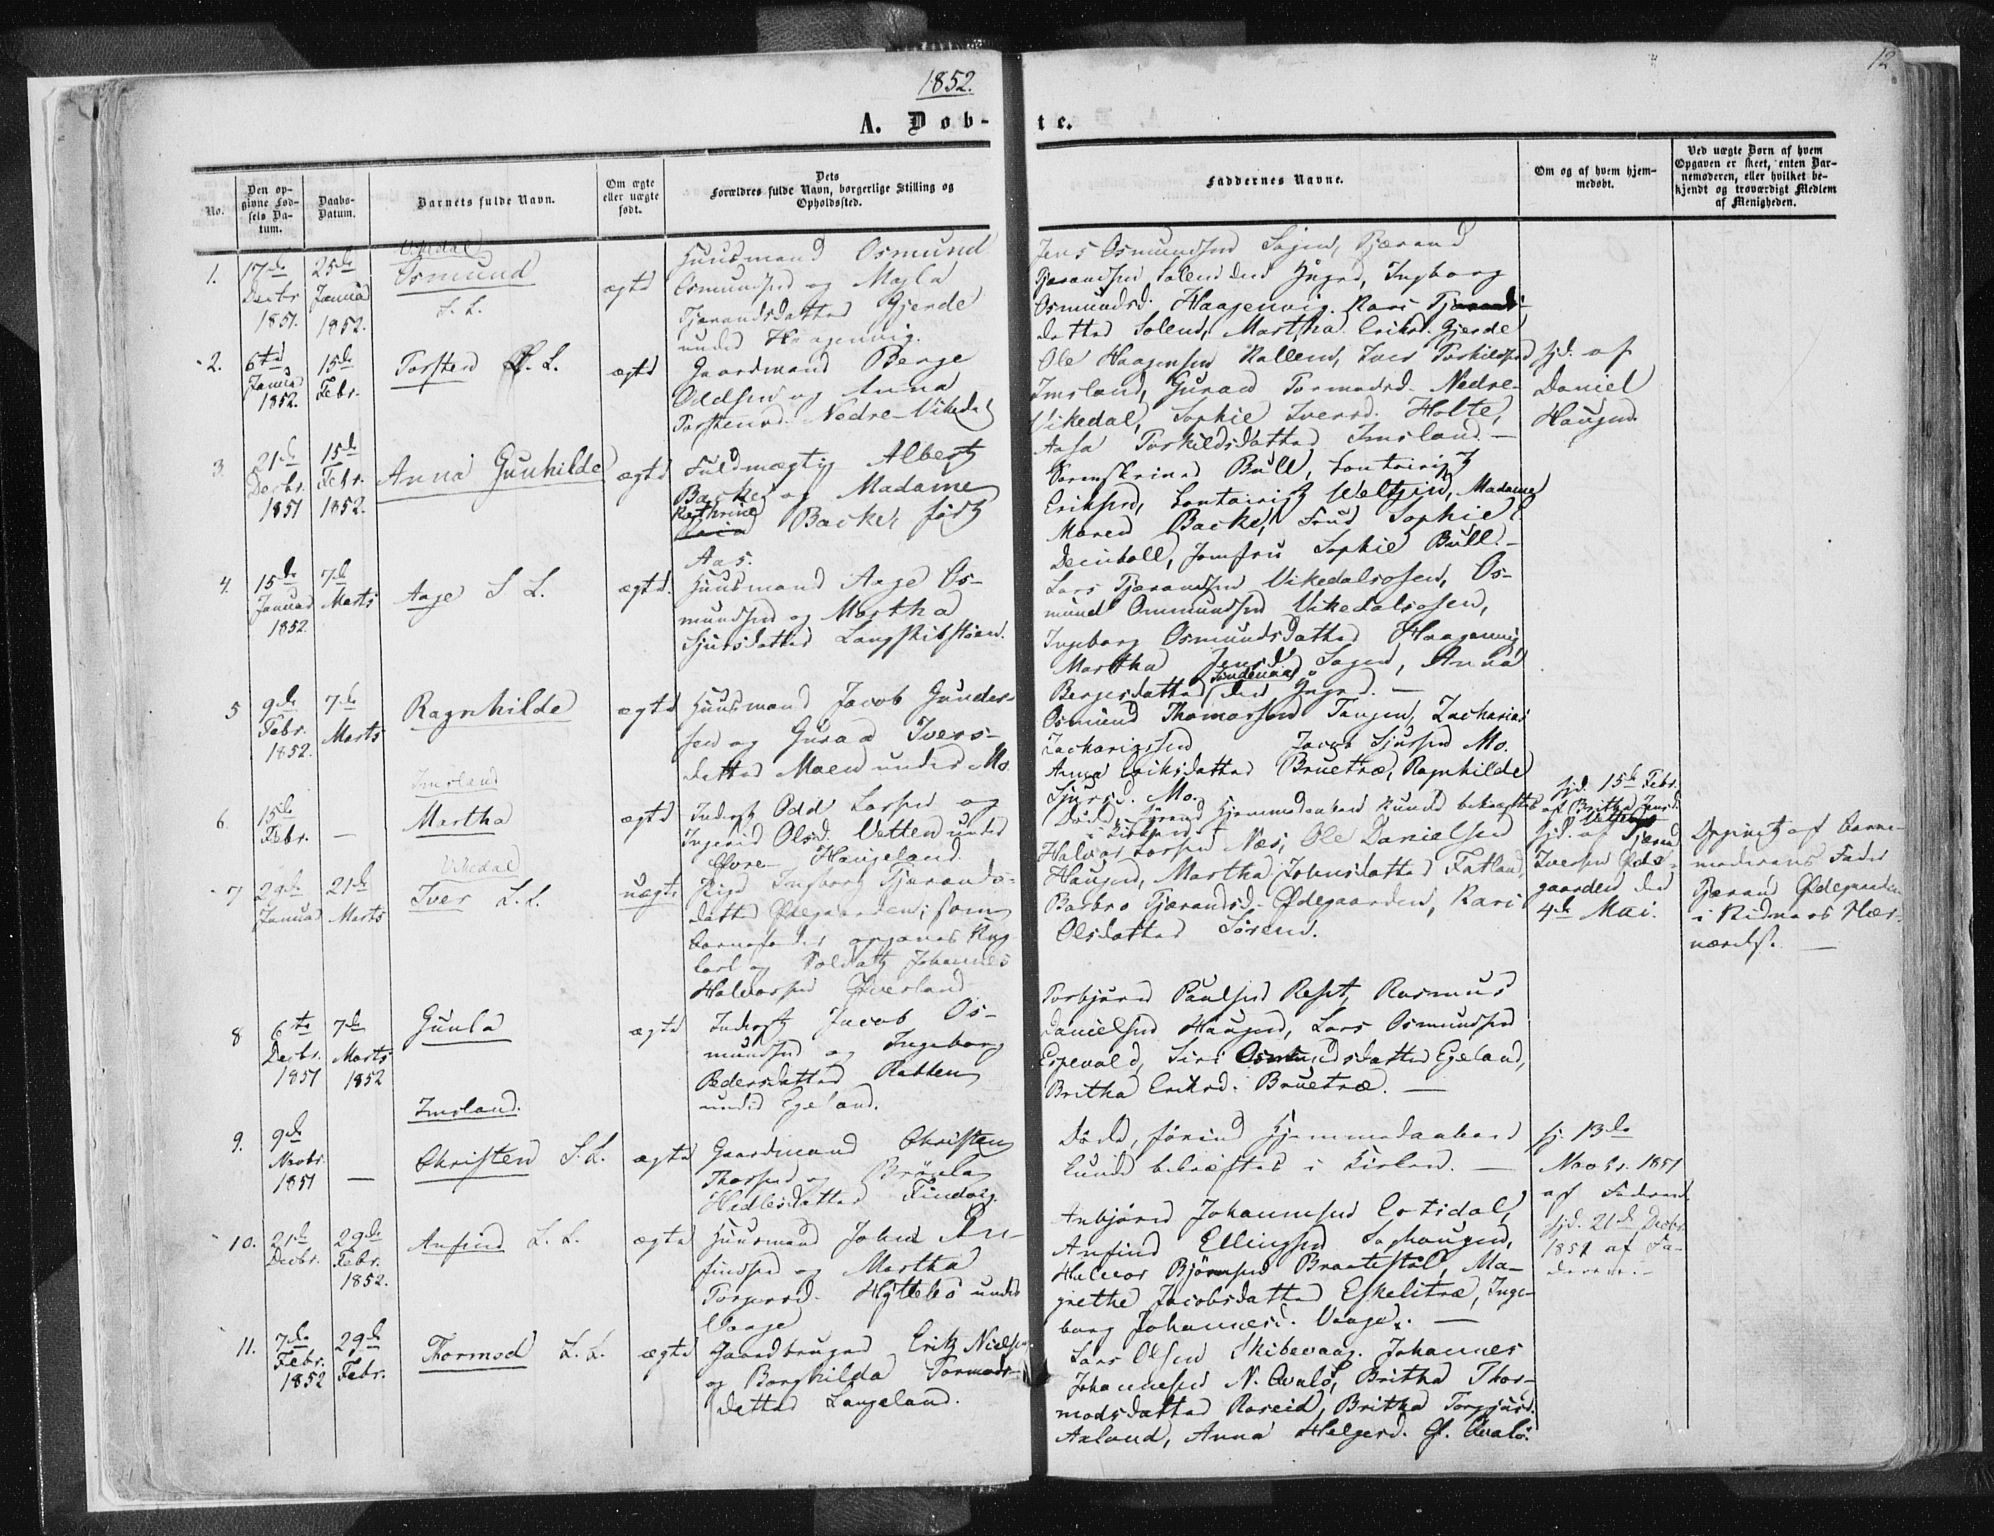 12
1852.
A. Døb-
te.
No.
Den op-
givne Fød-
sels Da-
tum.
Daabs-
Datum.
Barnets fulde Navn.
Om ægte
eller uægte
født.
Dets
Forældres fulde Navn, borgerlige Stilling og
Opholdssted.
Faddernes Navne.
Om og af hvem hjem-
medøbt.
Ved uægte Børn af hvem
Opgaven er skeet, enten Bar-
nemoderen, eller hvilket be-
kjendt og troværdigt Medlem
af Menigheden.
Vikedal
1.
17de
Decbr
1851.
25de
Januar
1852.
Osmund
L. L.
ægte
Huusmand Osmund
Osmundsen og Mala
Tjerandsdatter Gjerde
under Haagenvig.
Jens Osmundsen Sagen, Tjærand
Tjærandsen Solend
Osmundsd. Haagenvig. Kari Tjærands-
datter Solend, Martha Eriksd. Gjerde
2.
6te
Januar
1852.
15de
Febr.
Torsten L. L.
ægte
Gaardmand Berge
Oddsen og Anna
Torstensd. Nedre-Vikedal
Ole Haagensen Kallem, Iver Torkildsen
Imsland, Guraa Tormodsd. Nedre-
Vikedal, Sophie Iversd. Holte,
Aasa Torkildsdatter Imsland. —
hjd. af
Daniel
Haugen.
3
21de
Decbr.
1851
15de
Febr.
1852.
Anna Gunhilde
ægte
Fuldmægtig Albert
Backer og Madame
Kathrine
Backer født
Aas.
Sorenskriver Bull,
Eriksen, Weltzin, Madame
Maren Backer, Frue Sophie
Deinboll, Jomfru Sophie Bull. —
4.
15de
Januar
1852
7de
Marts
Aage L L.
ægte.
Huusmand Aage Os-
mundsen og Martha
Sjursdatter Langskibstøen.
Lars Tjærandsen Vikedalsosen, Os-
mund Ommundsen Vikedalsosen,
Ingeborg Osmundsdatter Haagenvig
Martha Jensd. Sagen, Anna
Bergesdatter
5
9de
Febr.
1852.
7de
Marts
Ragnhilde
ægte
Huusmand Jacob Gunder-
sen og Guraa Ivers-
datter Moen under Mo.
Osmund Thomassen Tangen, Zacharias
Zachariassen Jacob Sjursen Mo.
Anna Eriksdatter Bruetræ, Ragnhilde
Sjursd. Mo.
Imsland
6
15de
Febr.
—
Martha
ægte
Inderst Odd Larsen og
Ingerid Olsd. Vetten under
Øvre Haugeland.
Døde, førend Hjemmedaaben kunde bekræftes
i Kirken
hjd. 15de Febr.
af Britha Jensd.
Vikedal
7
29de
Januar
21de
Marts
Iver L. L.
uægte
Pige Ingeborg Tjærands-
datter Ødegaarden; som
Barnefader opgaves Ung-
karl og Soldat Johannes
Halvorsen Øverland
Halvor Larsen Næs, Ole Danielsen
Haugen, Martha Johnsdatter Fatland,
Barbro Tjærandsd. Ødegaarden, Kari
Olsdatter Søren.
hjd. af Tjærand
Iversen Øde-
gaarden den
4de Mai.
Opgivet af Barne-
moderens Fader
Tjærand Ødegaarden
i Vidners Nær-
værelse. —
8
6te
Decbr.
1851
7de
Marts
1852
Gunla
ægte
Inderst Jacob Os-
mundsen og Ingeborg
Pedersdatter Rakken
under Egeland.
Torbjørn Paulsen Røset, Rasmus
Danielsen Haugen, Lars Osmundsen
Espevold, Siri Osmundsdatter Egeland,
Britha Eriksd. Bruetræ. —
Imsland.
9.
9de
Novbr.
1851
—
Christen L. L.
ægte
Gaardmand Christen
Thorsen og Brønla
Hedlesdatter Findvig.
Døde, førend Hjemmedaaben
kunde bekræftes i Kirken. —
hj. 13de
Novbr. 1851
af Faderen
10.
21de
Decbr.
29de
Febr.
1852.
Anfind L. L.
ægte
Huusmand John An-
findsen og Martha
Torgersd. Hyttebø under
Vaage
Anbjørn Johannesen Ersdal,
Anfind Ellingsen Saghaugen,
Halvor Bjørnsen Braatestøl, Ma-
grethe Jacobsdatter Eskelitræ, Inge-
borg Johannesd. Vaage. —
hjd. 21de Decbr.
1851 af Fa-
deren. —
11.
7de
Febr.
1852
29de
Febr.
Thormod L. L.
ægte
Gaardbruger Erik Nielsen
og Borghilda Tormods-
datter Langeland.
Lars Olsen Skibevaag. Johannes
Johannesen N. Qvalø, Britha Thor-
modsdatter Roseid, Britha Torgjersd.
Axland, Anna Helgesd. Ø. Qvalø.